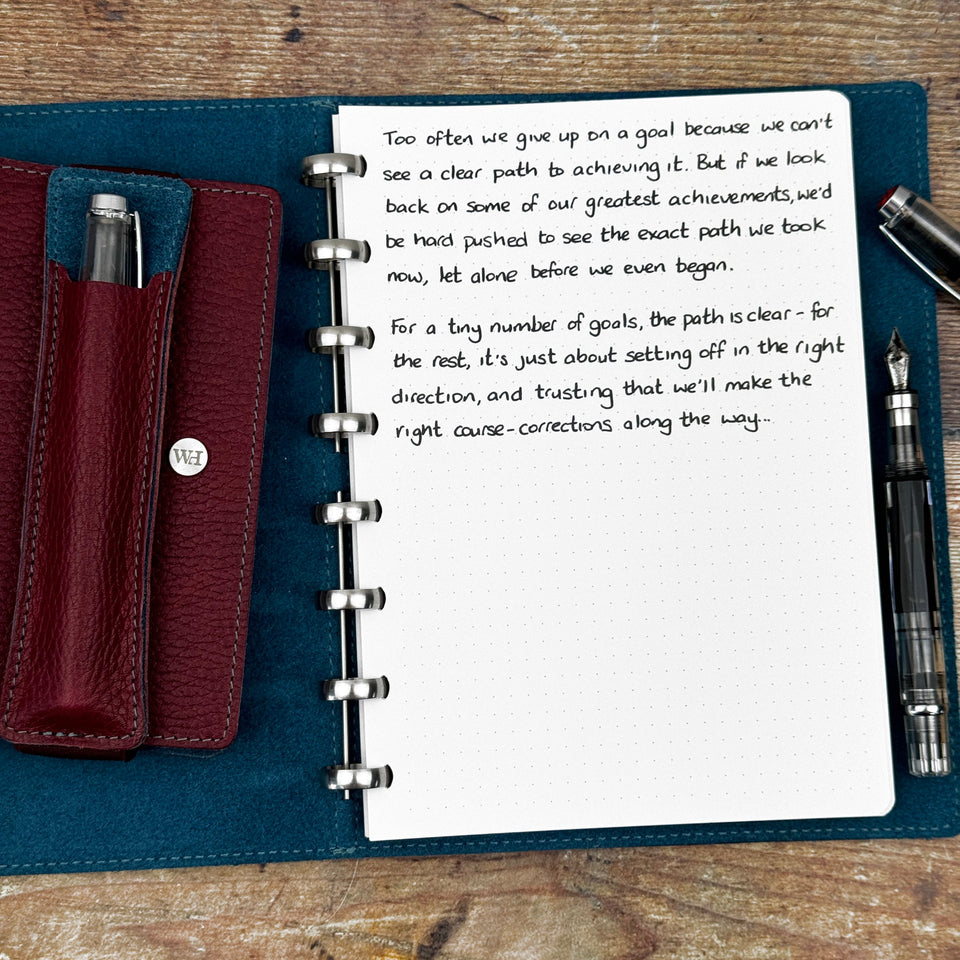 Too often we give up on a goal because we can't
see a clear path to achieving it. But if we look
back on some of our greatest achievements, we'd
be hard pushed to see the exact path we took
now, let alone before we even began.
For a tiny number of goals, the path is clear - for
the rest, it's just about setting off in the right
direction, and trusting that we'll make the
right course-corrections along the way...
WH